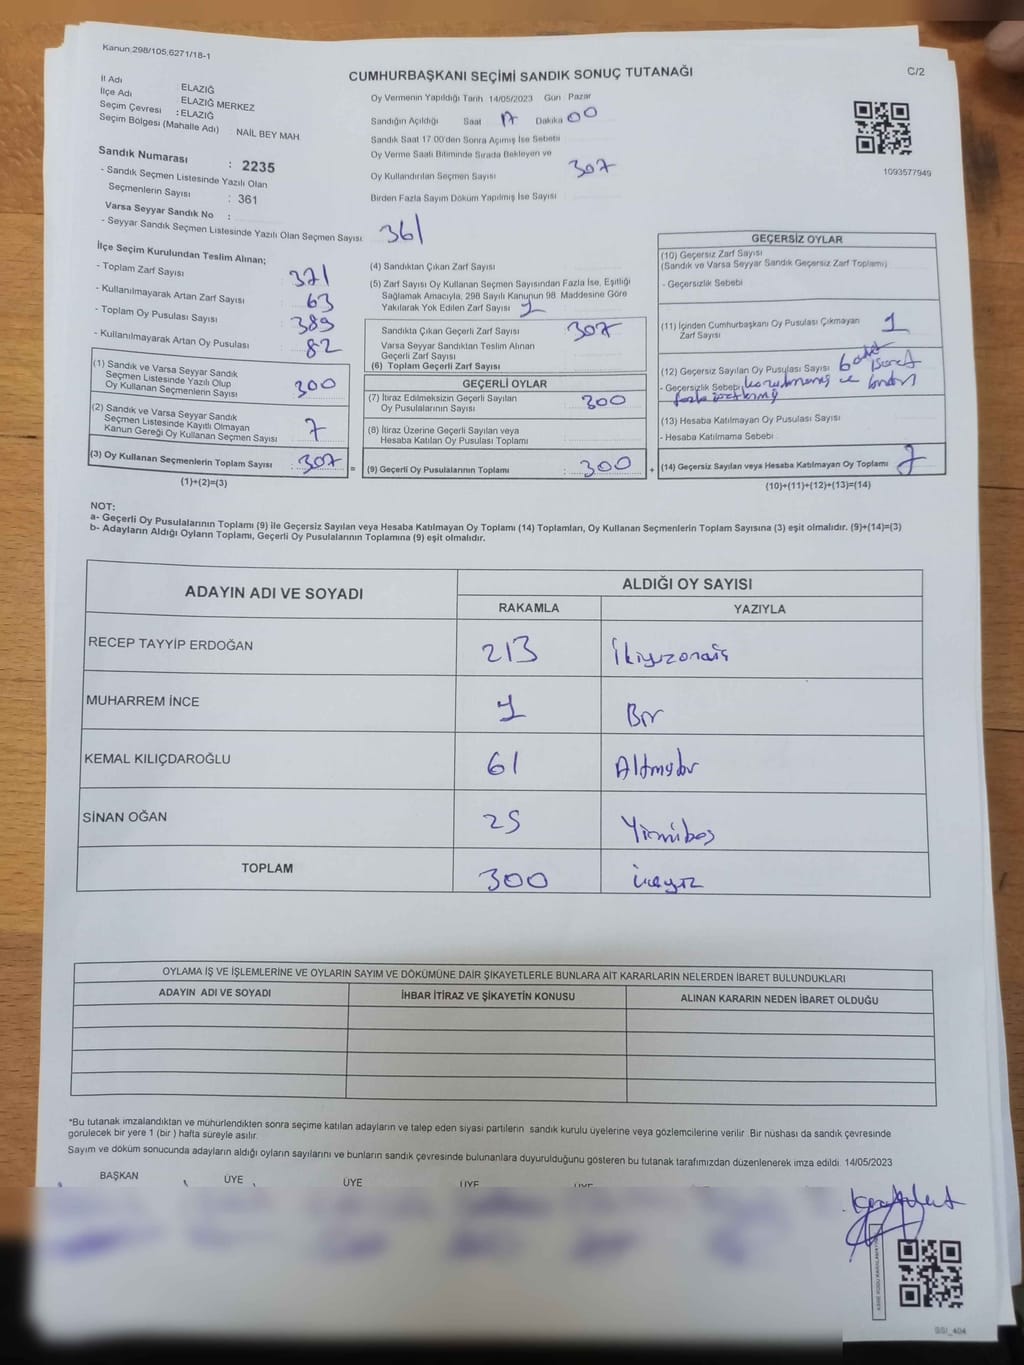 Kanun:298/105,6271/18-1
CUMHURBAŞKANI SEÇİMİ SANDIK SONUÇ TUTANAĞI
C/2
İl Adı : ELAZIĞ
İlçe Adı : ELAZIĞ MERKEZ
Seçim Çevresi : ELAZIĞ
Seçim Bölgesi (Mahalle Adı) : NAİL BEY MAH
Sandık Numarası : 2235
- Sandık Seçmen Listesinde Yazılı Olan
Seçmenlerin Sayısı : 361
Varsa Seyyar Sandık No :
- Seyyar Sandık Seçmen Listesinde Yazılı Olan Seçmen Sayısı: 361
Oy Vermenin Yapıldığı Tarih 14/05/2023 Gün Pazar
Sandığın Açıldığı Saat 17 Dakika 00
Sandık Saat 17 00'den Sonra Açımış İse Sebebi
Oy Verme Saati Bitiminde Sırada Bekleyen ve
Oy Kullandırılan Seçmen Sayısı 307
Birden Fazla Sayım Döküm Yapılmış İse Sayısı
1093577949
İlçe Seçim Kurulundan Teslim Alınan;
- Toplam Zarf Sayısı 371
- Kullanılmayarak Artan Zarf Sayısı 63
- Toplam Oy Pusulası Sayısı 389
- Kullanılmayarak Artan Oy Pusulası 82
(1) Sandık ve Varsa Seyyar Sandık
Seçmen Listesinde Yazılı Olup
Oy Kullanan Seçmenlerin Sayısı 300
(2) Sandık ve Varsa Seyyar Sandık
Seçmen Listesinde Kayıtlı Olmayan
Kanun Gereği Oy Kullanan Seçmen Sayısı 7
(3) Oy Kullanan Seçmenlerin Toplam Sayısı : 307
(1)+(2)=(3)
(4) Sandıktan Çıkan Zarf Sayısı
(5) Zarf Sayısı Oy Kullanan Seçmen Sayısından Fazla İse, Eşitliği
Sağlamak Amacıyla, 298 Sayılı Kanunun 98. Maddesine Göre
Yakılarak Yok Edilen Zarf Sayısı 1
Sandıkta Çıkan Geçerli Zarf Sayısı 307
Varsa Seyyar Sandıktan Teslim Alınan
Geçerli Zarf Sayısı
(6) Toplam Geçerli Zarf Sayısı
GEÇERLİ OYLAR
(7) İtiraz Edilmeksizin Geçerli Sayılan
Oy Pusulalarının Sayısı 300
(8) İtiraz Üzerine Geçerli Sayılan veya
Hesaba Katılan Oy Pusulası Toplamı
= (9) Geçerli Oy Pusulalarının Toplamı : 300 +
GEÇERSİZ OYLAR
(10) Geçersiz Zarf Sayısı
(Sandık ve Varsa Seyyar Sandık Geçersiz Zarf Toplamı)
- Geçersizlik Sebebi
(11) İçinden Cumhurbaşkanı Oy Pusulası Çıkmayan
Zarf Sayısı 1
(12) Geçersiz Sayılan Oy Pusulası Sayısı 6
- Geçersizlik Sebebi
(13) Hesaba Katılmayan Oy Pusulası Sayısı
- Hesaba Katılmama Sebebi
(14) Geçersiz Sayılan veya Hesaba Katılmayan Oy Toplamı 7
(10)+(11)+(12)+(13)=(14)
NOT:
a- Geçerli Oy Pusulalarının Toplamı (9) ile Geçersiz Sayılan veya Hesaba Katılmayan Oy Toplamı (14) Toplamları, Oy Kullanan Seçmenlerin Toplam Sayısına (3) eşit olmalıdır. (9)+(14)=(3)
b- Adayların Aldığı Oyların Toplamı, Geçerli Oy Pusulalarının Toplamına (9) eşit olmalıdır.
ADAYIN ADI VE SOYADI ALDIĞI OY SAYISI
RAKAMLA YAZIYLA
RECEP TAYYİP ERDOĞAN 213 ikiyüzonüç
MUHARREM İNCE 1 Bir
KEMAL KILIÇDAROĞLU 61 Altmışbir
SİNAN OĞAN 25 Yirmibeş
TOPLAM 300 üçyüz
OYLAMA İŞ VE İŞLEMLERİNE VE OYLARIN SAYIM VE DÖKÜMÜNE DAİR ŞİKAYETLERLE BUNLARA AİT KARARLARIN NELERDEN İBARET BULUNDUKLARI
ADAYIN ADI VE SOYADI İHBAR İTİRAZ VE ŞİKAYETİN KONUSU ALINAN KARARIN NEDEN İBARET OLDUĞU
*Bu tutanak imzalandıktan ve mühürlendikten sonra seçime katılan adayların ve talep eden siyasi partilerin sandık kurulu üyelerine veya gözlemcilerine verilir. Bir nüshası da sandık çevresinde
görülecek bir yere 1 (bir) hafta süreyle asılır.
Sayım ve döküm sonucunda adayların aldığı oyların sayılarını ve bunların sandık çevresinde bulunanlara duyurulduğunu gösteren bu tutanak tarafımızdan düzenlenerek imza edildi. 14/05/2023
BAŞKAN ÜYE ÜYE ÜYE ÜYE
SSI_404